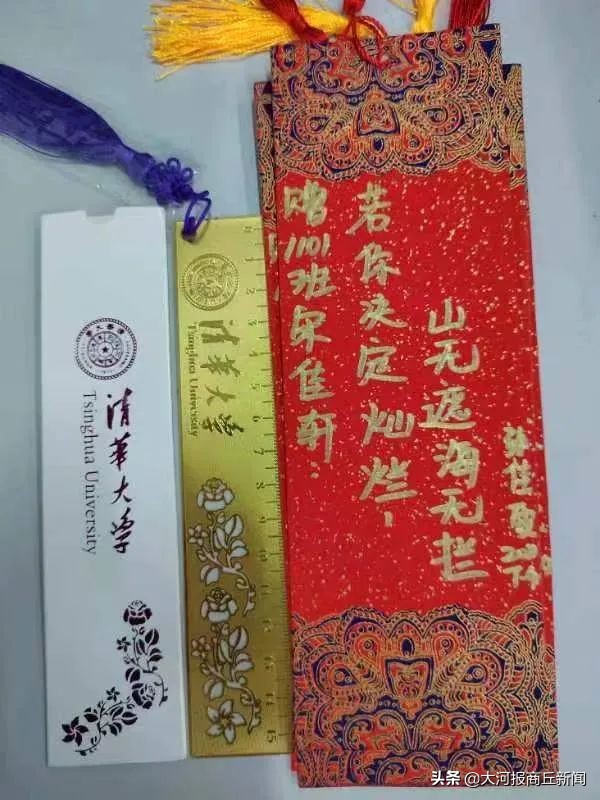 清華大学
Tsinghua University
清華大学
Tsinghua University
赠1101班宋佳轩：
若你决定灿烂，
山无遮海无拦
头条 @大河报商丘新闻